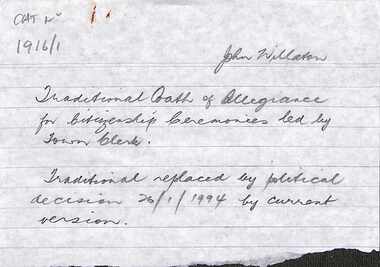 CAT Nº
1916/1
John Willaton
Traditional Oath of Allegiance
for Citizenship Ceremonies led by
Town Clerk.
Traditional replaced by political
decision 26/1/1994 by current
version.